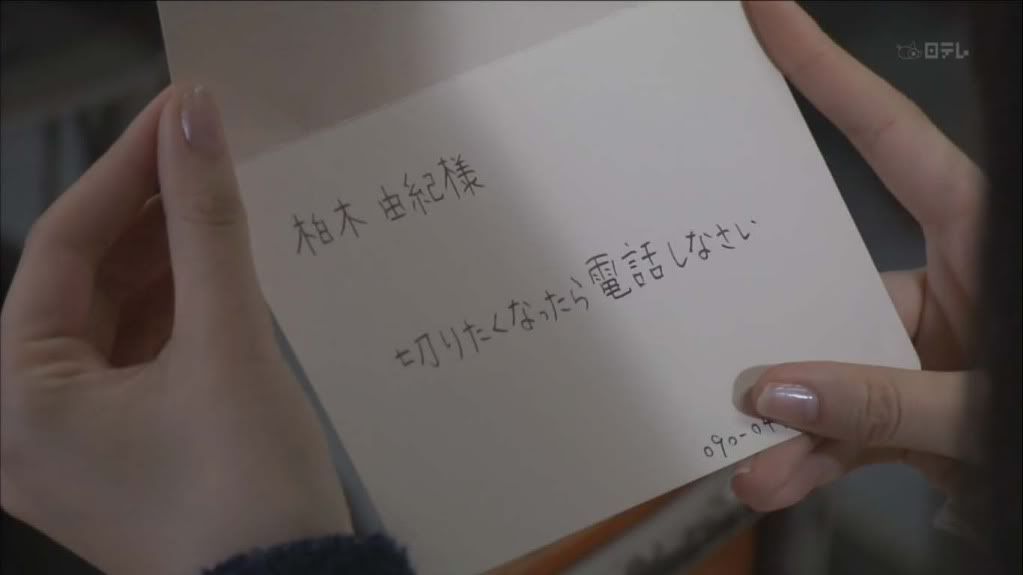 日テレ
柏木 由紀様
切りたくなったら電話しなさい
090-04